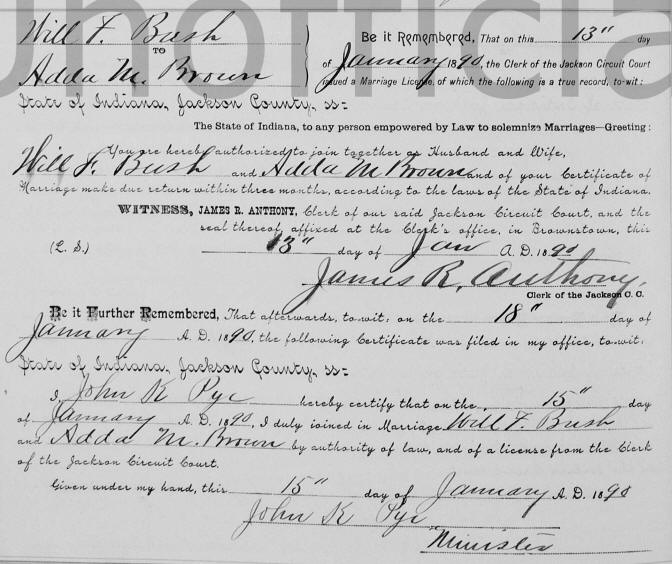 unofficia
Will F. Bush
TO
Adda M. Brown
Be it Remembered, That on this 13" day
of January 1890, the Clerk of the Jackson Circuit Court
issued a Marriage License, of which the following is a true record, to-wit:
State of Indiana, Jackson County, ss:
The State of Indiana, to any person empowered by Law to solemnize Marriages—Greeting:
You are hereby authorized to join together as Husband and Wife,
Will F. Bush and Adda M Brown and of your Certificate of
Marriage make due return within three months, according to the laws of the State of Indiana.
WITNESS, JAMES R. ANTHONY, Clerk of our said Jackson Circuit Court, and the
seal thereof, affixed at the Clerk's office, in Brownstown, this
(L. S.) 13" day of Jan A. D. 1890
James R. Anthony,
Clerk of the Jackson C. C.
Be it Further Remembered, That afterwards, to-wit: on the 18" day of
January A. D. 1890, the following Certificate was filed in my office, to-wit:
State of Indiana, Jackson County, ss:
I, John K Pye hereby certify that on the 15" day
of January A. D. 1890, I duly joined in Marriage Will F. Bush
and Adda M. Brown by authority of law, and of a license from the Clerk
of the Jackson Circuit Court.
Given under my hand, this 15" day of January A. D. 1890
John K Pye
Minister